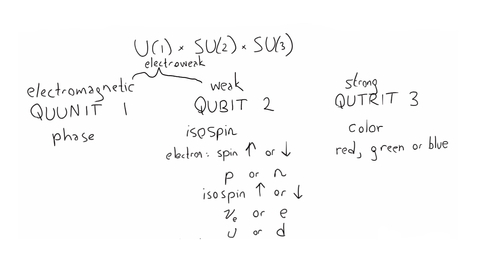 U(1) × SU(2) × SU(3)
electroweak
electromagnetic
QUUNIT 1
phase
weak
QUBIT 2
isospin
electron: spin ↑ or ↓
p or n
isospin ↑ or ↓
νe or e
u or d
strong
QUTRIT 3
color
red, green or blue